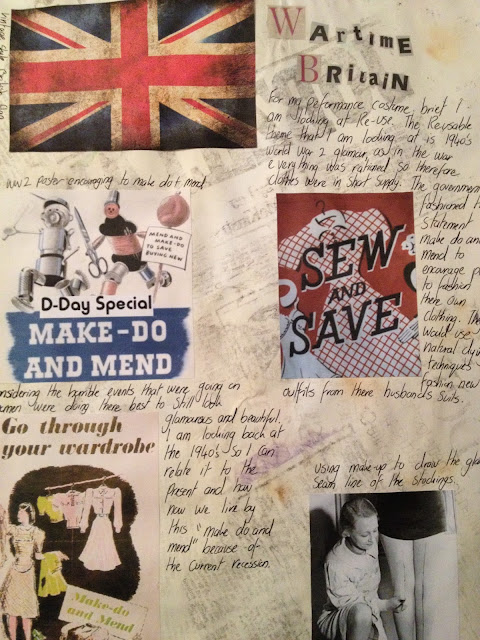 WARTIME
BRITAIN
For my peformance costume, brief I
am looking at Re-Use. The Reusable
theme that I am looking at is 1940's
world war 2 glamour as in the war
everything was rationed so therefore
clothes were in short supply. The government
fashioned
statement
make do and
mend to
encourage
to fashion
there own
clothing. The
would use
natural
techniques
fashion new
outfits from there husbands suits.
WW2 poster encouraging to make do + mend.
MEND AND
MAKE-DO
TO SAVE
BUYING NEW
D-Day Special
MAKE-DO
AND MEND
SEW
AND
SAVE
considering the horrible events that were going on
women were doing there best to still look
glamourous and beautiful.
I am looking back at
the 1940's so I can
relate it to the
present and how
now we live by
this "make do and
mend" because of
the current recession.
Go through
your wardrobe
Make-do
and Mend
using make-up to draw the
seam line of the stockings.